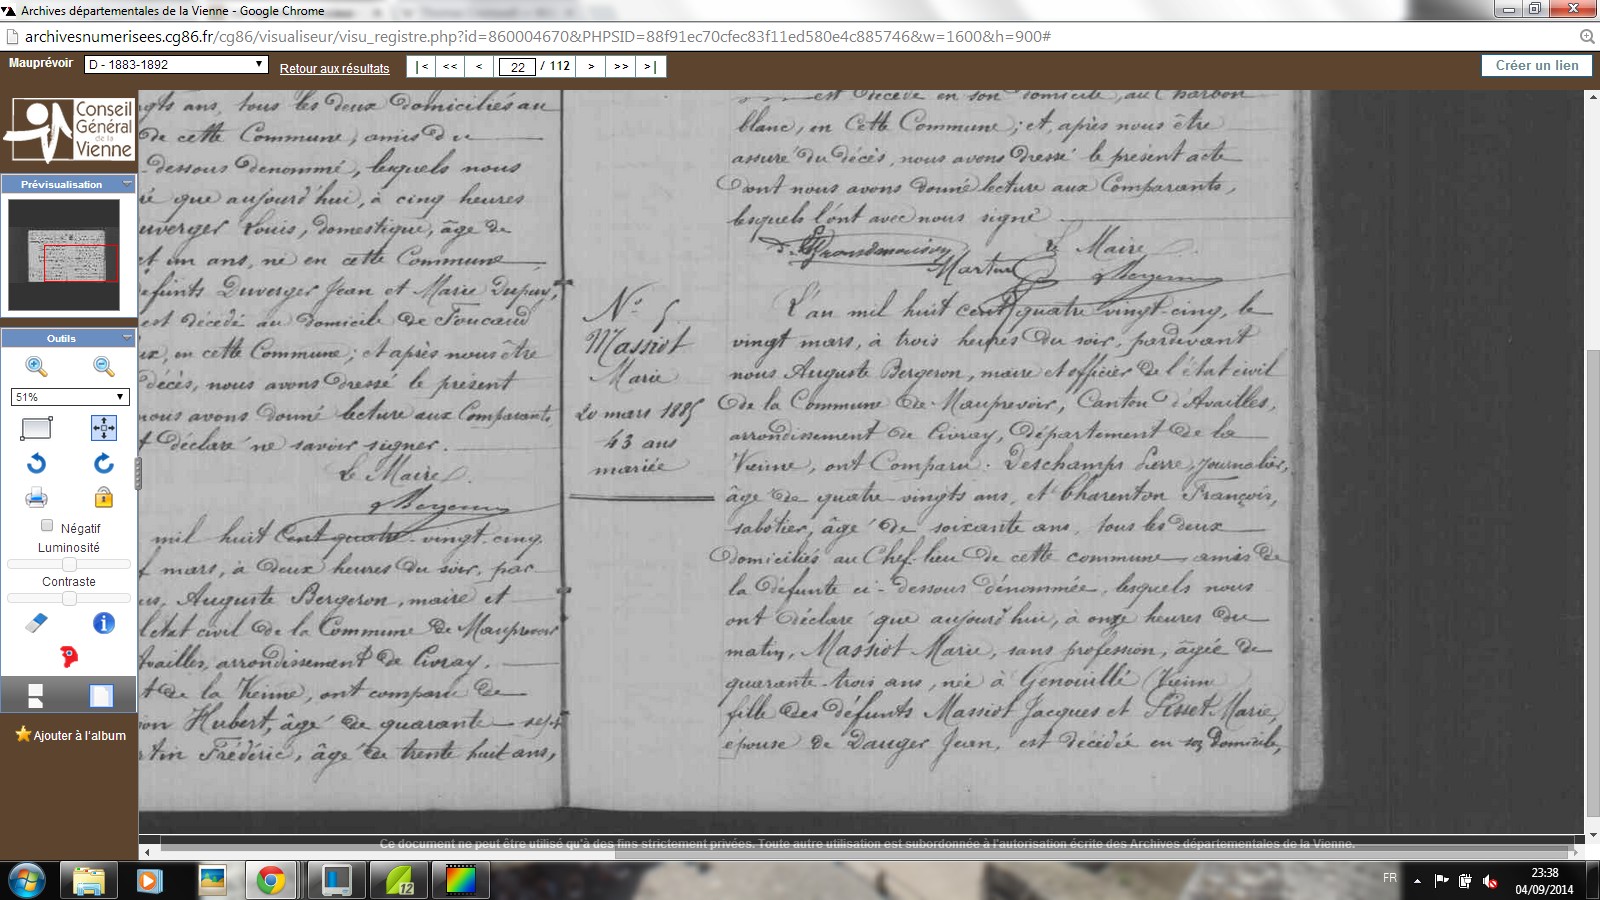 Archives départementales de la Vienne - Google Chrome
archivesnumerisees.cg86.fr/cg86/visualiseur/visu_registre.php?id=860004670&PHPSID=88f91ec70cfec83f11ed580e4c885746&w=1600&h=900#
Mauprévoir D - 1883-1892 Retour aux résultats |< << < 22 / 112 > >> >| Créer un lien
Conseil
Général
de la
Vienne
Prévisualisation
Outils
51%
Négatif
Luminosité
Contraste
Ajouter à l'album
ngts ans, tous les deux domiciliés au
de cette Commune, amis du
dessous dénommé, lesquels nous
ré que aujourd'hui, à cinq heures
uverger Louis, domestique, âgé de
et un ans, né en cette Commune
défunts Duverger Jean et Marie Dupuy,
est décédé au domicile de Foucaud
ux, en cette Commune; et après nous être
décès, nous avons dressé le présent
nous avons donné lecture aux Comparants,
t déclaré ne savoir signer.
Le Maire
Bergeron
mil huit Cent quatre-vingt-cinq
f mars, à deux heures du soir, par
us, Auguste Bergeron, maire et
l'état civil de la Commune de Mauprevoir
Availles, arrondissement de Civray,
t de la Vienne, ont comparu de
ion Hubert, âgé de quarante-sept
rtin Frédéric, âgé de trente huit ans,
N° 5
Massiot
Marie
20 mars 1885
43 ans
mariée
est décédé en son domicile, au Charbon
blanc, en Cette Commune; et, après nous être
assuré du décès, nous avons dressé le présent acte
dont nous avons donné lecture aux Comparants,
lesquels l'ont avec nous signé
Le Maire
Martin Bergeron
L'an mil huit cent quatre vingt-cinq, le
vingt mars, à trois heures du soir, pardevant
nous Auguste Bergeron, maire et officier de l'état civil
de la Commune de Mauprevoir, Canton d'Availles,
arrondissement de Civray, département de la
Vienne, ont Comparu: Deschamps Pierre, journalier,
âgé de quatre-vingts ans, et Charenton François,
sabotier, âgé de soixante ans, tous les deux
domiciliés au Chef-lieu de cette commune, amis de
la défunte ci-dessous dénommée, lesquels nous
ont déclaré que aujourd'hui, à onze heures du
matin, Massiot Marie, sans profession, âgée de
quarante-trois ans, née à Genouillé (Vienne
fille des défunts Massiot Jacques et Pisset Marie,
épouse de Dauger Jean, est décédée en son domicile,
Ce document ne peut être utilisé qu'à des fins strictement privées. Toute autre utilisation est subordonnée à l'autorisation écrite des Archives départementales de la Vienne.
12
FR
23:38
04/09/2014